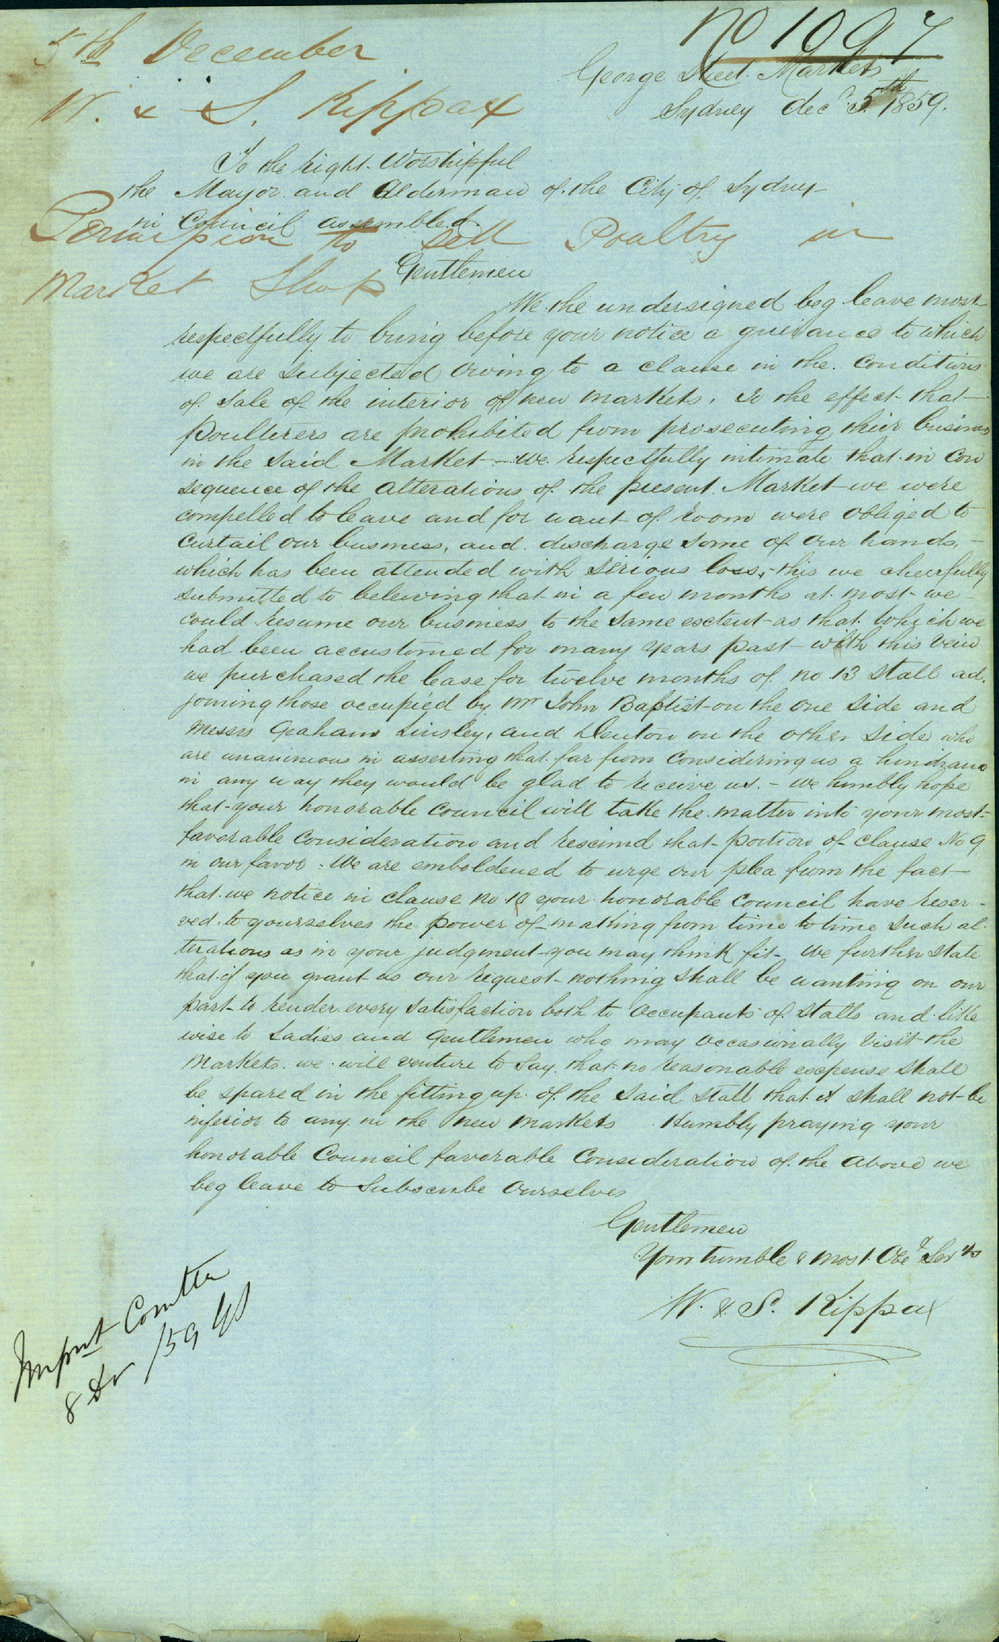 No 1097
5th December
George Street Markets
W. & S. Rippax
Sydney Decr 5th 1859.
To the Right Worshipful
the Mayor and Alderman of the City of Sydney
in Council assembled.
Permission to Sell Poultry in
Market Shop
Gentlemen
We the undersigned beg leave most
respectfully to bring before your notice a grievance to which
we are subjected owing to a clause in the Conditions
of Sale of the interior of new markets, to the effect that
Poulterers are prohibited from prosecuting their business
in the said Market - we respectfully intimate that in con
sequence of the alterations of the present Market we were
compelled to leave and for want of room were obliged to
curtail our business, and discharge some of our hands, -
which has been attended with serious loss, - this we cheerfully
submitted to beleiving that in a few months at most we
could resume our business to the same esctent as that which we
had been accustomed for many years past - with this view
we purchased the lease for twelve months of no 13 Stall ad,
joining those occupied by Mr John Baptist on the one side and
Messrs Graham Linsley, and Denton on the other side who
are unanimous in asserting that far from considering us a hindrance
in any way they would be glad to receive us. - we humbly hope
that your honorable Council will take the matter into your most
favorable consideration and rescind that portion of clause No 9
in our favor. We are emboldened to urge our plea from the fact
that we notice in clause no 19 your honorable Council have reser-
ved to yourselves the power of making from time to time such al-
terations as in your judgment you may think fit - We further state
that if you grant us our request nothing shall be wanting on our
part to render every satisfaction both to occupants of Stalls and like
wise to Ladies and Gentlemen who may occasionally visit the
Markets. we will venture to say that no reasonable escpense shall
be spared in the fitting up of the said stall that it shall not be
inferior to any in the new markets Humbly praying your
honorable Council favorable Consideration of the above we
beg leave to subscribe ourselves
Gentlemen
Your humble & most Obet Servts
W. & S. Rippax
Comttee
8 /59